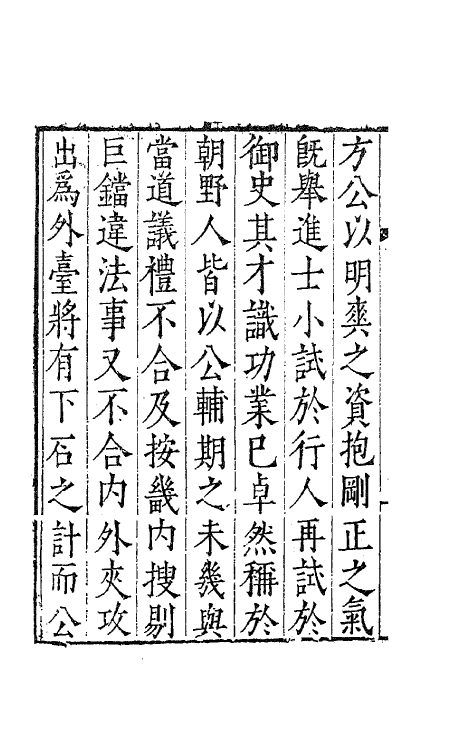 方公以明爽之資抱剛正之氣
旣舉進士小試於行人再試於
御史其才識功業已卓然稱於
朝野人皆以公輔期之未幾與
當道議禮不合及按畿内搜剔
巨鐺違法事又不合内外夾攻
出爲外臺將有下石之計而公